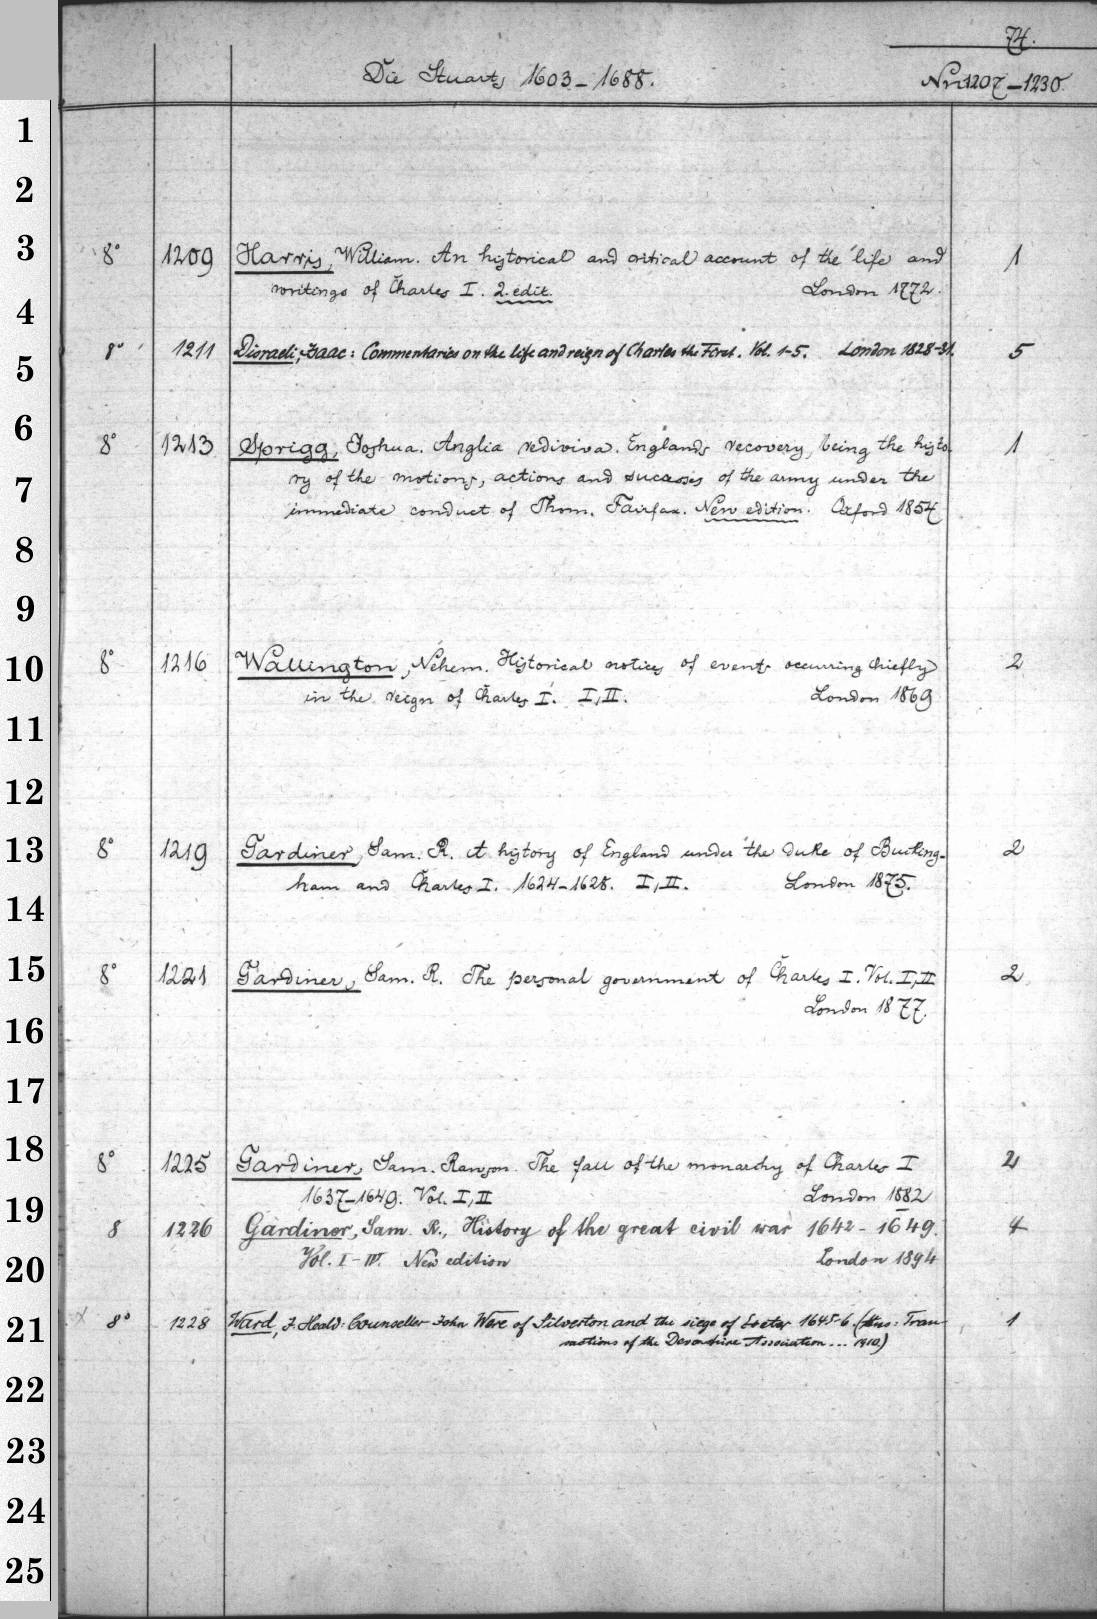 74.
Die Stuarts 1603-1688.
Nr. 1207-1230.
1
2
3
8° 1209 Harris, William. An historical and critical account of the life and 1
writings of Charles I. 2. edit. London 1772.
4
8° 1211 Disraeli, Isaac: Commentaries on the life and reign of Charles the First. Vol. 1-5. London 1828-31. 5
5
6
8° 1213 Sprigg, Joshua. Anglia rediviva. Englands recovery, being the histo- 1
ry of the motions, actions and successes of the army under the
7
immediate conduct of Thom. Fairfax. New edition. Oxford 1854
8
9
10
8° 1216 Wallington, Nehem. Historical notices of events occurring chiefly 2
in the reign of Charles I. I, II. London 1869
11
12
13
8° 1219 Gardiner, Sam. R. A history of England under the Duke of Bucking- 2
ham and Charles I. 1624-1628. I, II. London 1875.
14
15
8° 1221 Gardiner, Sam. R. The personal government of Charles I. Vol. I, II 2
London 1877.
16
17
18
8° 1225 Gardiner, Sam. Rawson. The fall of the monarchy of Charles I 2
1637-1649. Vol. I, II London 1882
19
8 1226 Gardiner, Sam. R., History of the great civil war 1642-1649. 4
Vol. I-IV. New edition London 1894
20
21
x 8° 1228 Ward, F. Heald: Counseller John Were of Silverton and the siege of Exeter 1645-6. (Aus: Tran- 1
sactions of the Devonshire Association ... 1910)
22
23
24
25